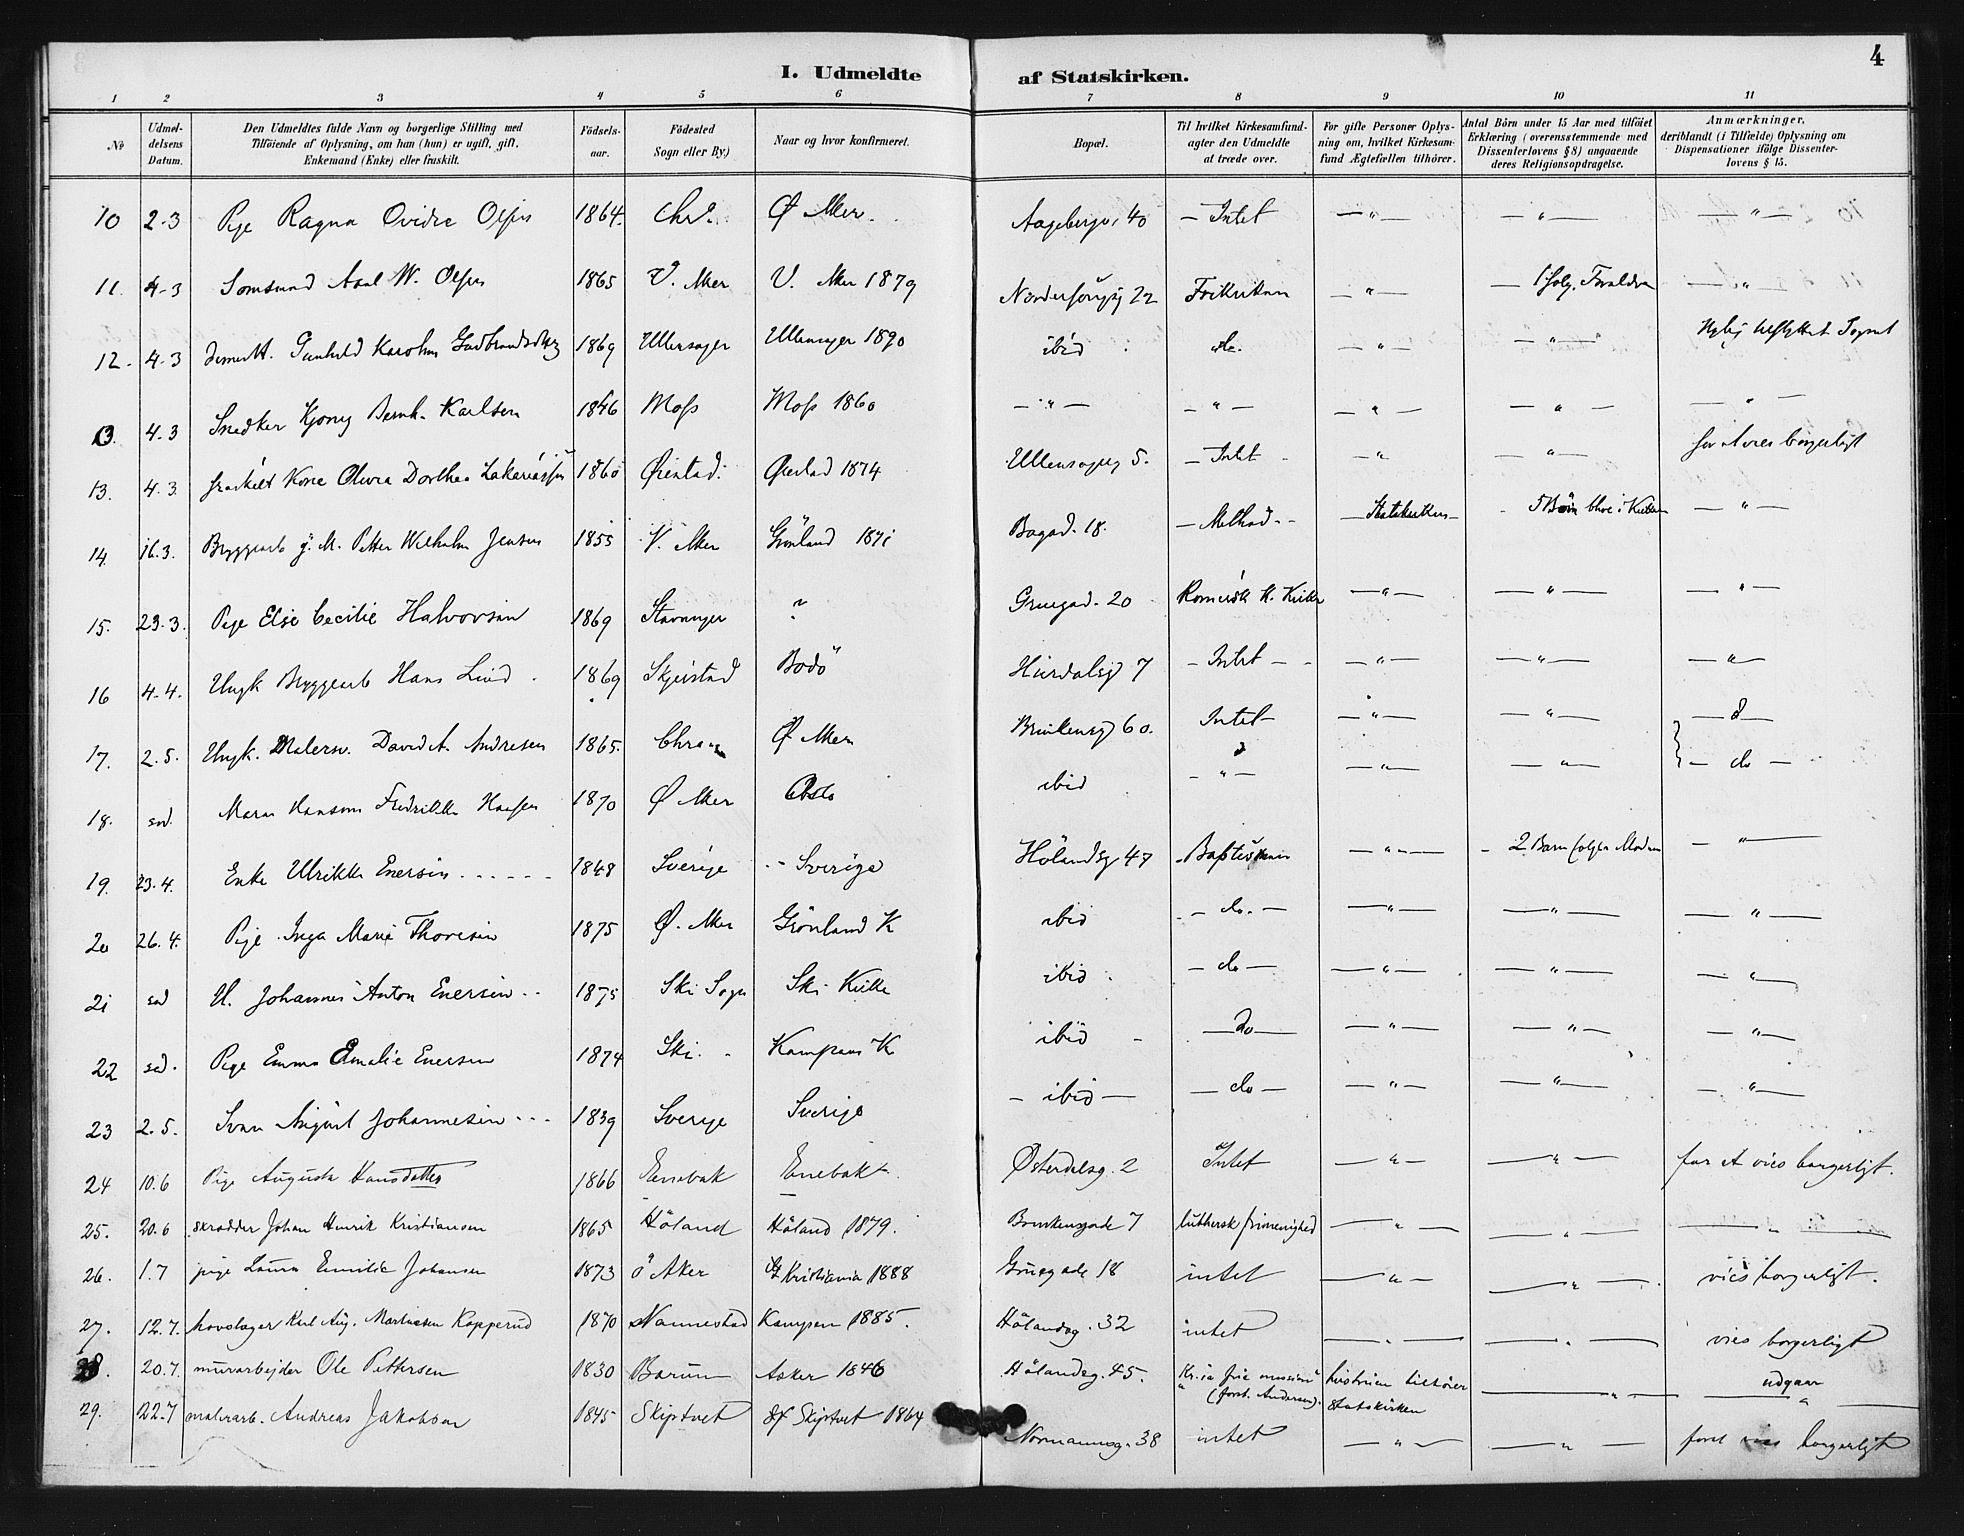 4
I. Udmeldte af Statskirken.
1 2 3 4 5 6 7 8 9 10 11
No
Udmel-
delsens
Datum.
Den Udmeldtes fulde Navn og borgerlige Stilling med
Tilføiende af Oplysning, om han (hun) er ugift, gift,
Enkemand (Enke) eller fraskilt.
Fødsels-
aar.
Fødested
Sogn eller By.)
Naar og hvor konfirmeret.
Bopæl.
Til hvilket Kirkesamfund
agter den Udmeldte
at træde over.
For gifte Personer Oplys-
ning om, hvilket Kirkesam-
fund Ægtefællen tilhører.
Antal Børn under 15 Aar med tilføiet
Erklæring (overensstemmende med
Dissenterlovens § 8) angaaende
deres Religionsopdragelse.
Anmærkninger,
deriblandt (i Tilfælde) Oplysning om
Dispensationer ifølge Dissenter-
lovens § 15.
10 2-3 Pige Ragna Ovidia Olsen 1864. Chr. Ø Aker. 40 — Intet — " — — " — — " —
11. 4-3 Axel W. Olsen 1865 V. Aker V. Aker 1879 22 Frikirken — " — — " —
12. 4-3 Gunhild Karoline 1869 Ullensager Ullensager 1890 ibid do. — " — — " —
13. 4.3 Snedker Bernh. Karlsen 1846 Moss Moss 1860 — " — — " — — " — — " — — " —
13. 4.3. fraskilt Kone Dorthea 1860 1874 Ullensagerg 5. — Intet — " — " — for at vies borgerligt
14. 16.3. Bryggearb g. M. Petter Wilhelm Jensen 1855 V. Aker Grønland 1871 Bogad. 18. — Method. — — Statskirken — 5 Børn blive i Kirken — " —
15. 23.3. Pige Else Cecilie Halvorsen 1869 Stavanger " Gruegad. 20 Romersk K. Kirke — " — — " — — " —
16 4.4. Ungk Bryggearb Hans Lind 1869 Skjerstad Bodø Hurdalsg 7 — Intet — — " — — " — — " —
17. 2.5. Ungk. Malersv. David A. Andresen 1865. Chra Ø Aker 60. Intet — " — — " — — d —
18. sd. Fredrikke Hansen 1870 Ø Aker Oslo ibid — " — — " — — " — — do —
19. 23.4. Enke Ulrikke Enersen 1848 Sverige — Sverige Hølandsg 47 Baptisterne — " — 2 Barn følger Moderen — " —
20 26.4. Pige Inga Marie Thoresen 1875 Ø. Aker Grønland K ibid — do. — — " — — " — — " —
21 sd U. Johannes Anton Enersen 1875 Ski Sogn Ski Kirke ibid — do — — " — — " — — " —
22 sd. Pige Emma Amalie Enersen 1874 Ski. Kampens K ibid — do — — " — — " — — " —
23 2.5. Sven August Johannesen 1839 Sverige Sverige — ibid — — do — — " — — " — — " —
24 10.6 Pige Augusta Hansdatter 1866 Enebak Enebak Østerdalsg. 2 Intet — " — — " — for at vies borgerligt.
25. 20.6 skrædder Johan Henrik Kristiansen 1865 Høland Høland 1879. Brinkensgade 7 luthersk frimenighed — " — — " — — " —
26. 1.7 pige Laura Emilie Johansen 1873 ø Aker Kristiania 1888 Gruegade 18 intet — " — — " — vies borgerligt.
27. 12.7. hovslager Karl Aug. Martinsen Kopperud 1870 Nannestad Kampen 1885. Hølandsg. 32 intet — " — — " — vies borgerligt
28. 20.7. murarbejder Ole Pettersen 1830 Bærum Asker 1846 Hølandsg. 45. Kr.ia frie mission (forst. Andersen). hustruen tilhører statskirken — " — udgaar
29. 22.7 malerarb. Andreas Jakobsen 1845 Skiptvet Skiptvet 1864 Normannsg. 38 intet — " — — " — vies borgerligt